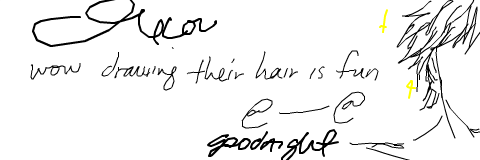 wow drawing their hair is fun
@ — @
goodnight